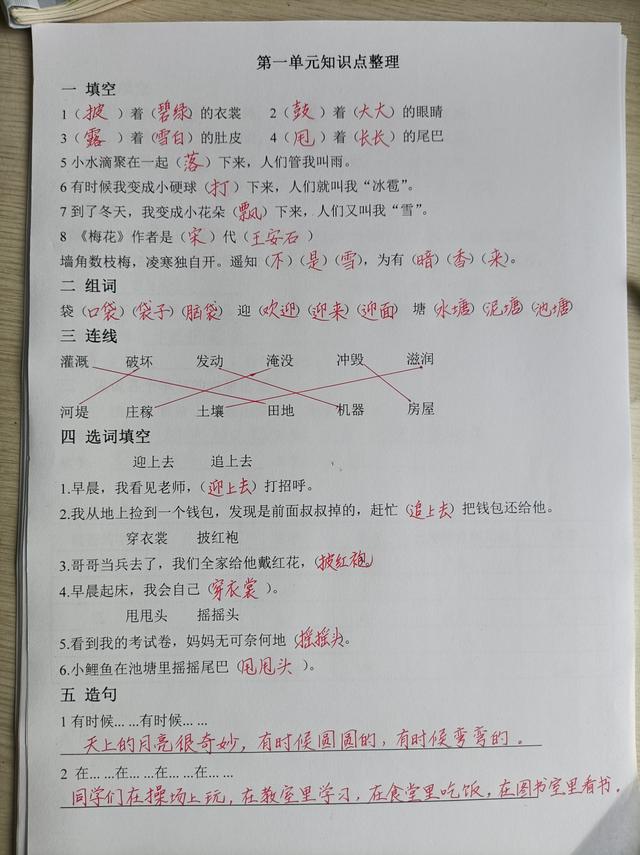 第一单元知识点整理
一 填空
1（披）着（碧绿）的衣裳 2（鼓）着（大大）的眼睛
3（露）着（雪白）的肚皮 4（甩）着（长长）的尾巴
5 小水滴聚在一起（落）下来，人们管我叫雨。
6 有时候我变成小硬球（打）下来，人们就叫我“冰雹”。
7 到了冬天，我变成小花朵（飘）下来，人们又叫我“雪”。
8 《梅花》作者是（宋）代（王安石）
墙角数枝梅，凌寒独自开。遥知（不）（是）（雪），为有（暗）（香）（来）。
二 组词
袋（口袋）（袋子）（脑袋） 迎（欢迎）（迎来）（迎面） 塘（水塘）（泥塘）（池塘）
三 连线
灌溉 破坏 发动 淹没 冲毁 滋润
河堤 庄稼 土壤 田地 机器 房屋
四 选词填空
迎上去 追上去
1.早晨，我看见老师，（迎上去）打招呼。
2.我从地上捡到一个钱包，发现是前面叔叔掉的，赶忙（追上去）把钱包还给他。
穿衣裳 披红袍
3.哥哥当兵去了，我们全家给他戴红花，（披红袍）。
4.早晨起床，我会自己（穿衣裳）。
甩甩头 摇摇头
5.看到我的考试卷，妈妈无可奈何地（摇摇头）。
6.小鲤鱼在池塘里摇摇尾巴（甩甩头）。
五 造句
1 有时候... ...有时候... ...
天上的月亮很奇妙，有时候圆圆的，有时候弯弯的。
2 在... ...在... ...在... ...在... ...
同学们在操场上玩，在教室里学习，在食堂里吃饭，在图书室里看书。